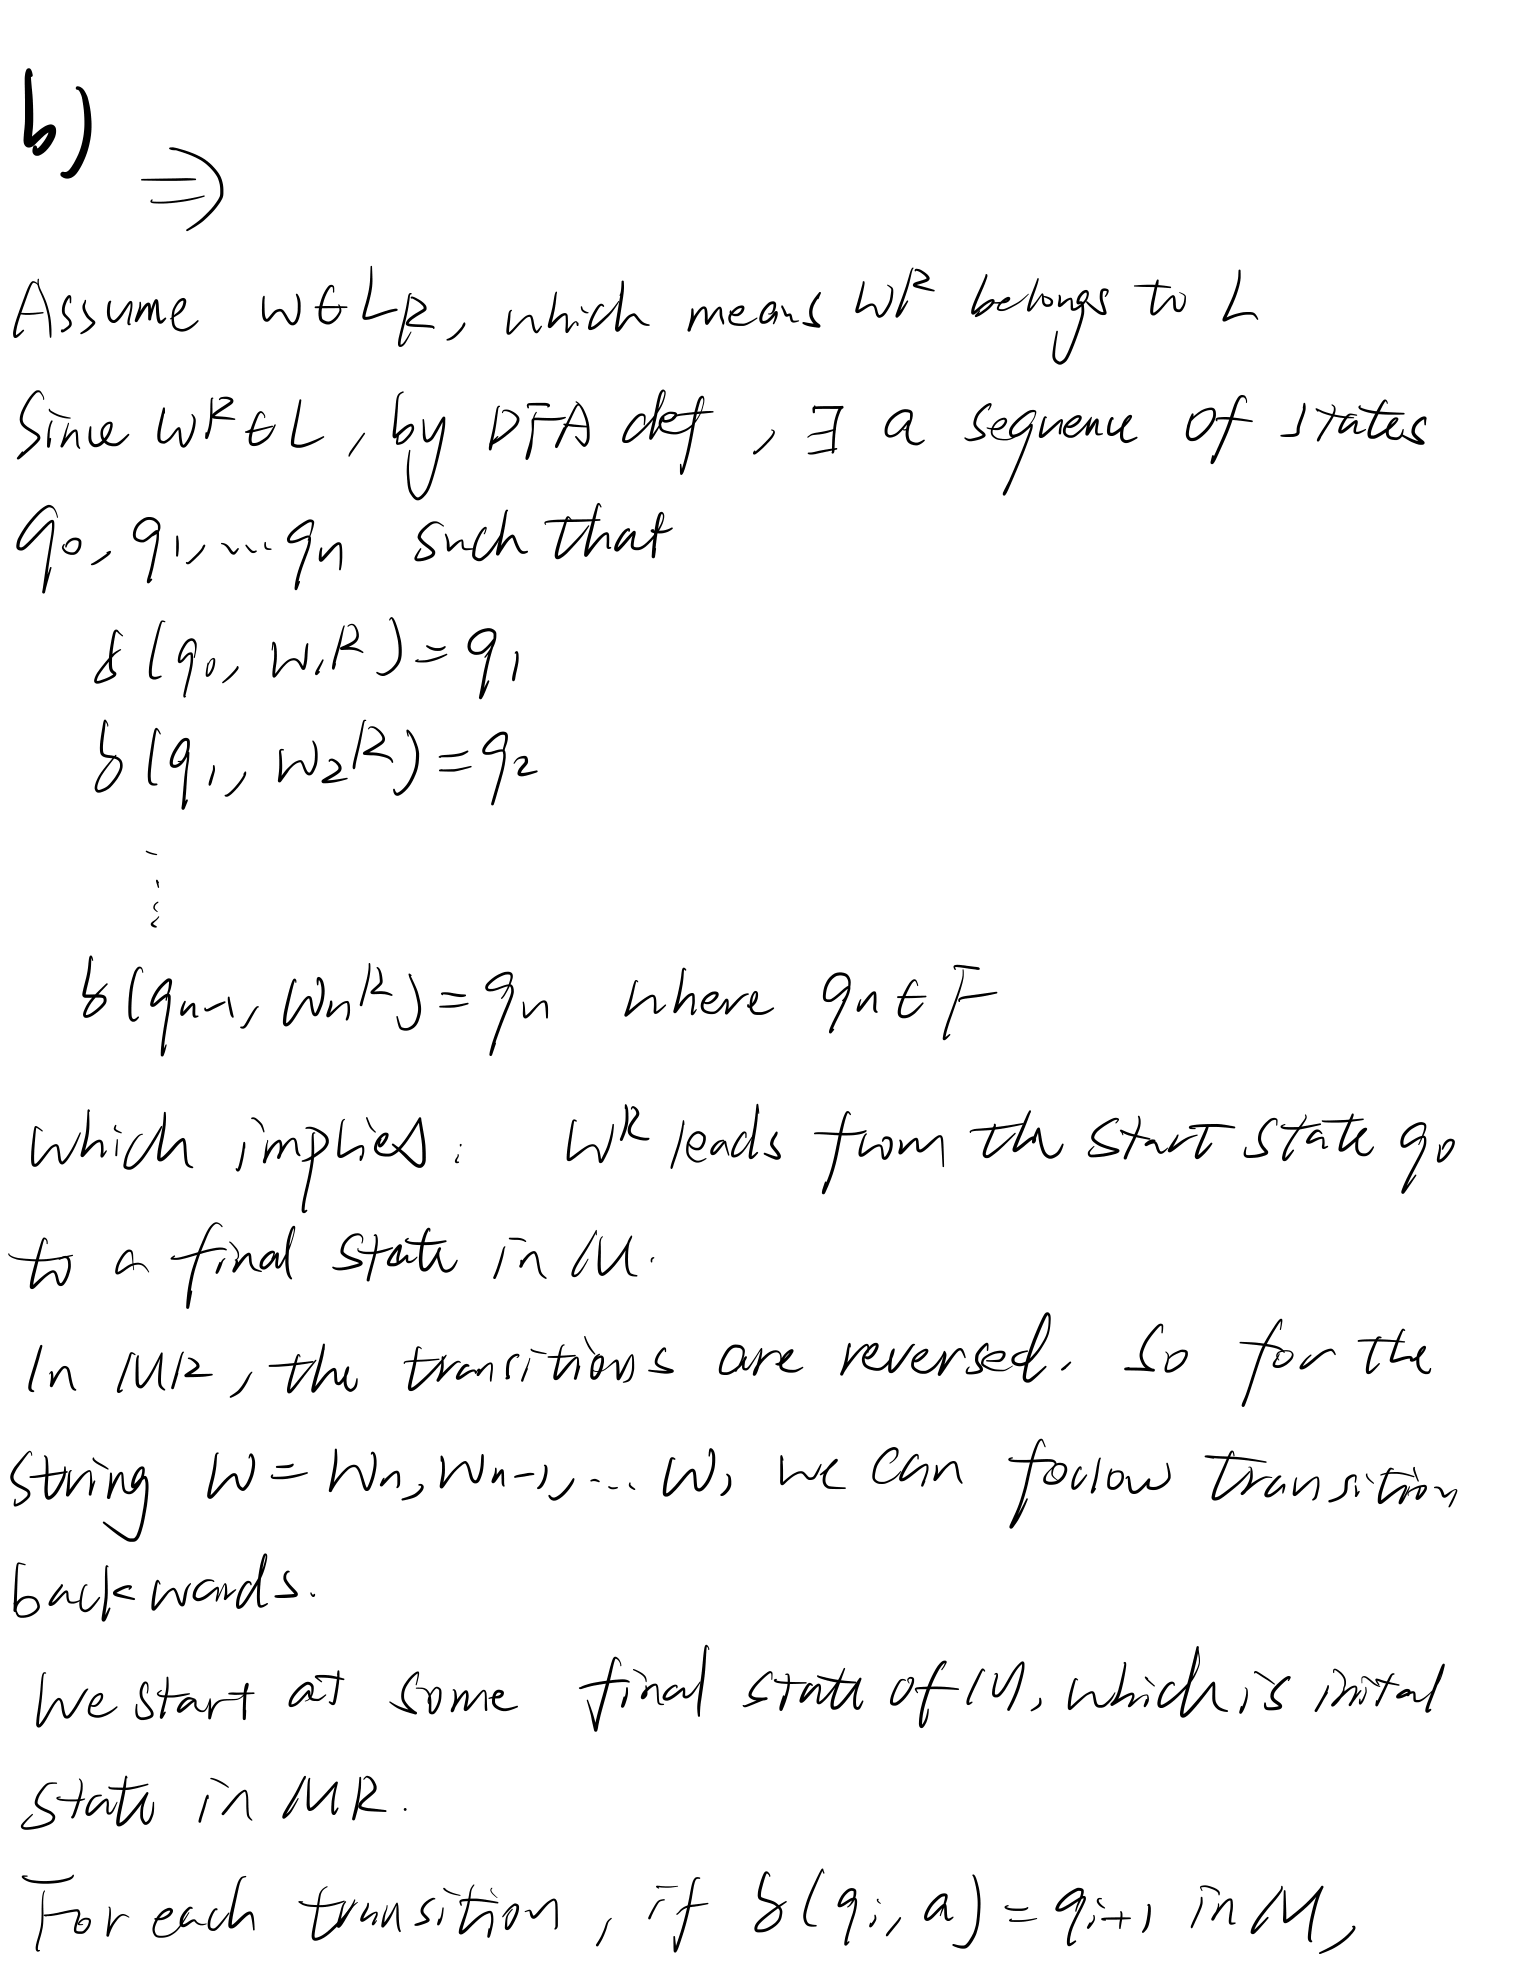 b)
⇒
Assume w∈LR, which means WR belongs to L
Since WR∈L, by DFA def, ∃ a sequence of states
q0, q1, ... qn such that
δ(q0, w1R) = q1
δ(q1, w2R) = q2
⋮
δ(qn-1, wnR) = qn where qn∈F
which implies: WR leads from the start state q0
to a final state in M.
In MR, the transitions are reversed. So for the
string W = Wn, Wn-1, ... W1 we can follow transition
backwards.
We start at some final state of M, which is inital
state in MR.
For each transition, if δ(qi, a) = qi+1 in M,